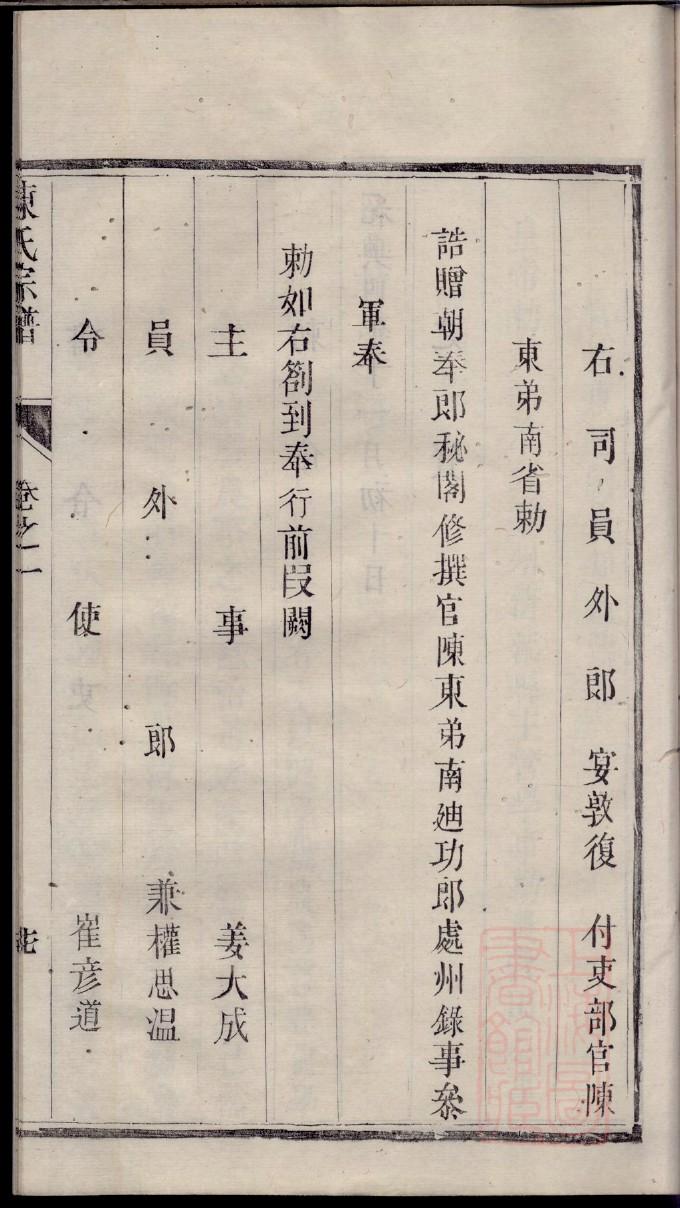 右司員外郎 宴敦復 付吏部官陳
東弟南省勅
誥贈朝奉郎秘閣修撰官陳東弟南廸功郎處州錄事叅
軍奉
勅如右劄到奉行前叚闕
主事 姜大成
員外郎 兼權思溫
令使 崔彦道
陳氏宗譜 卷之一